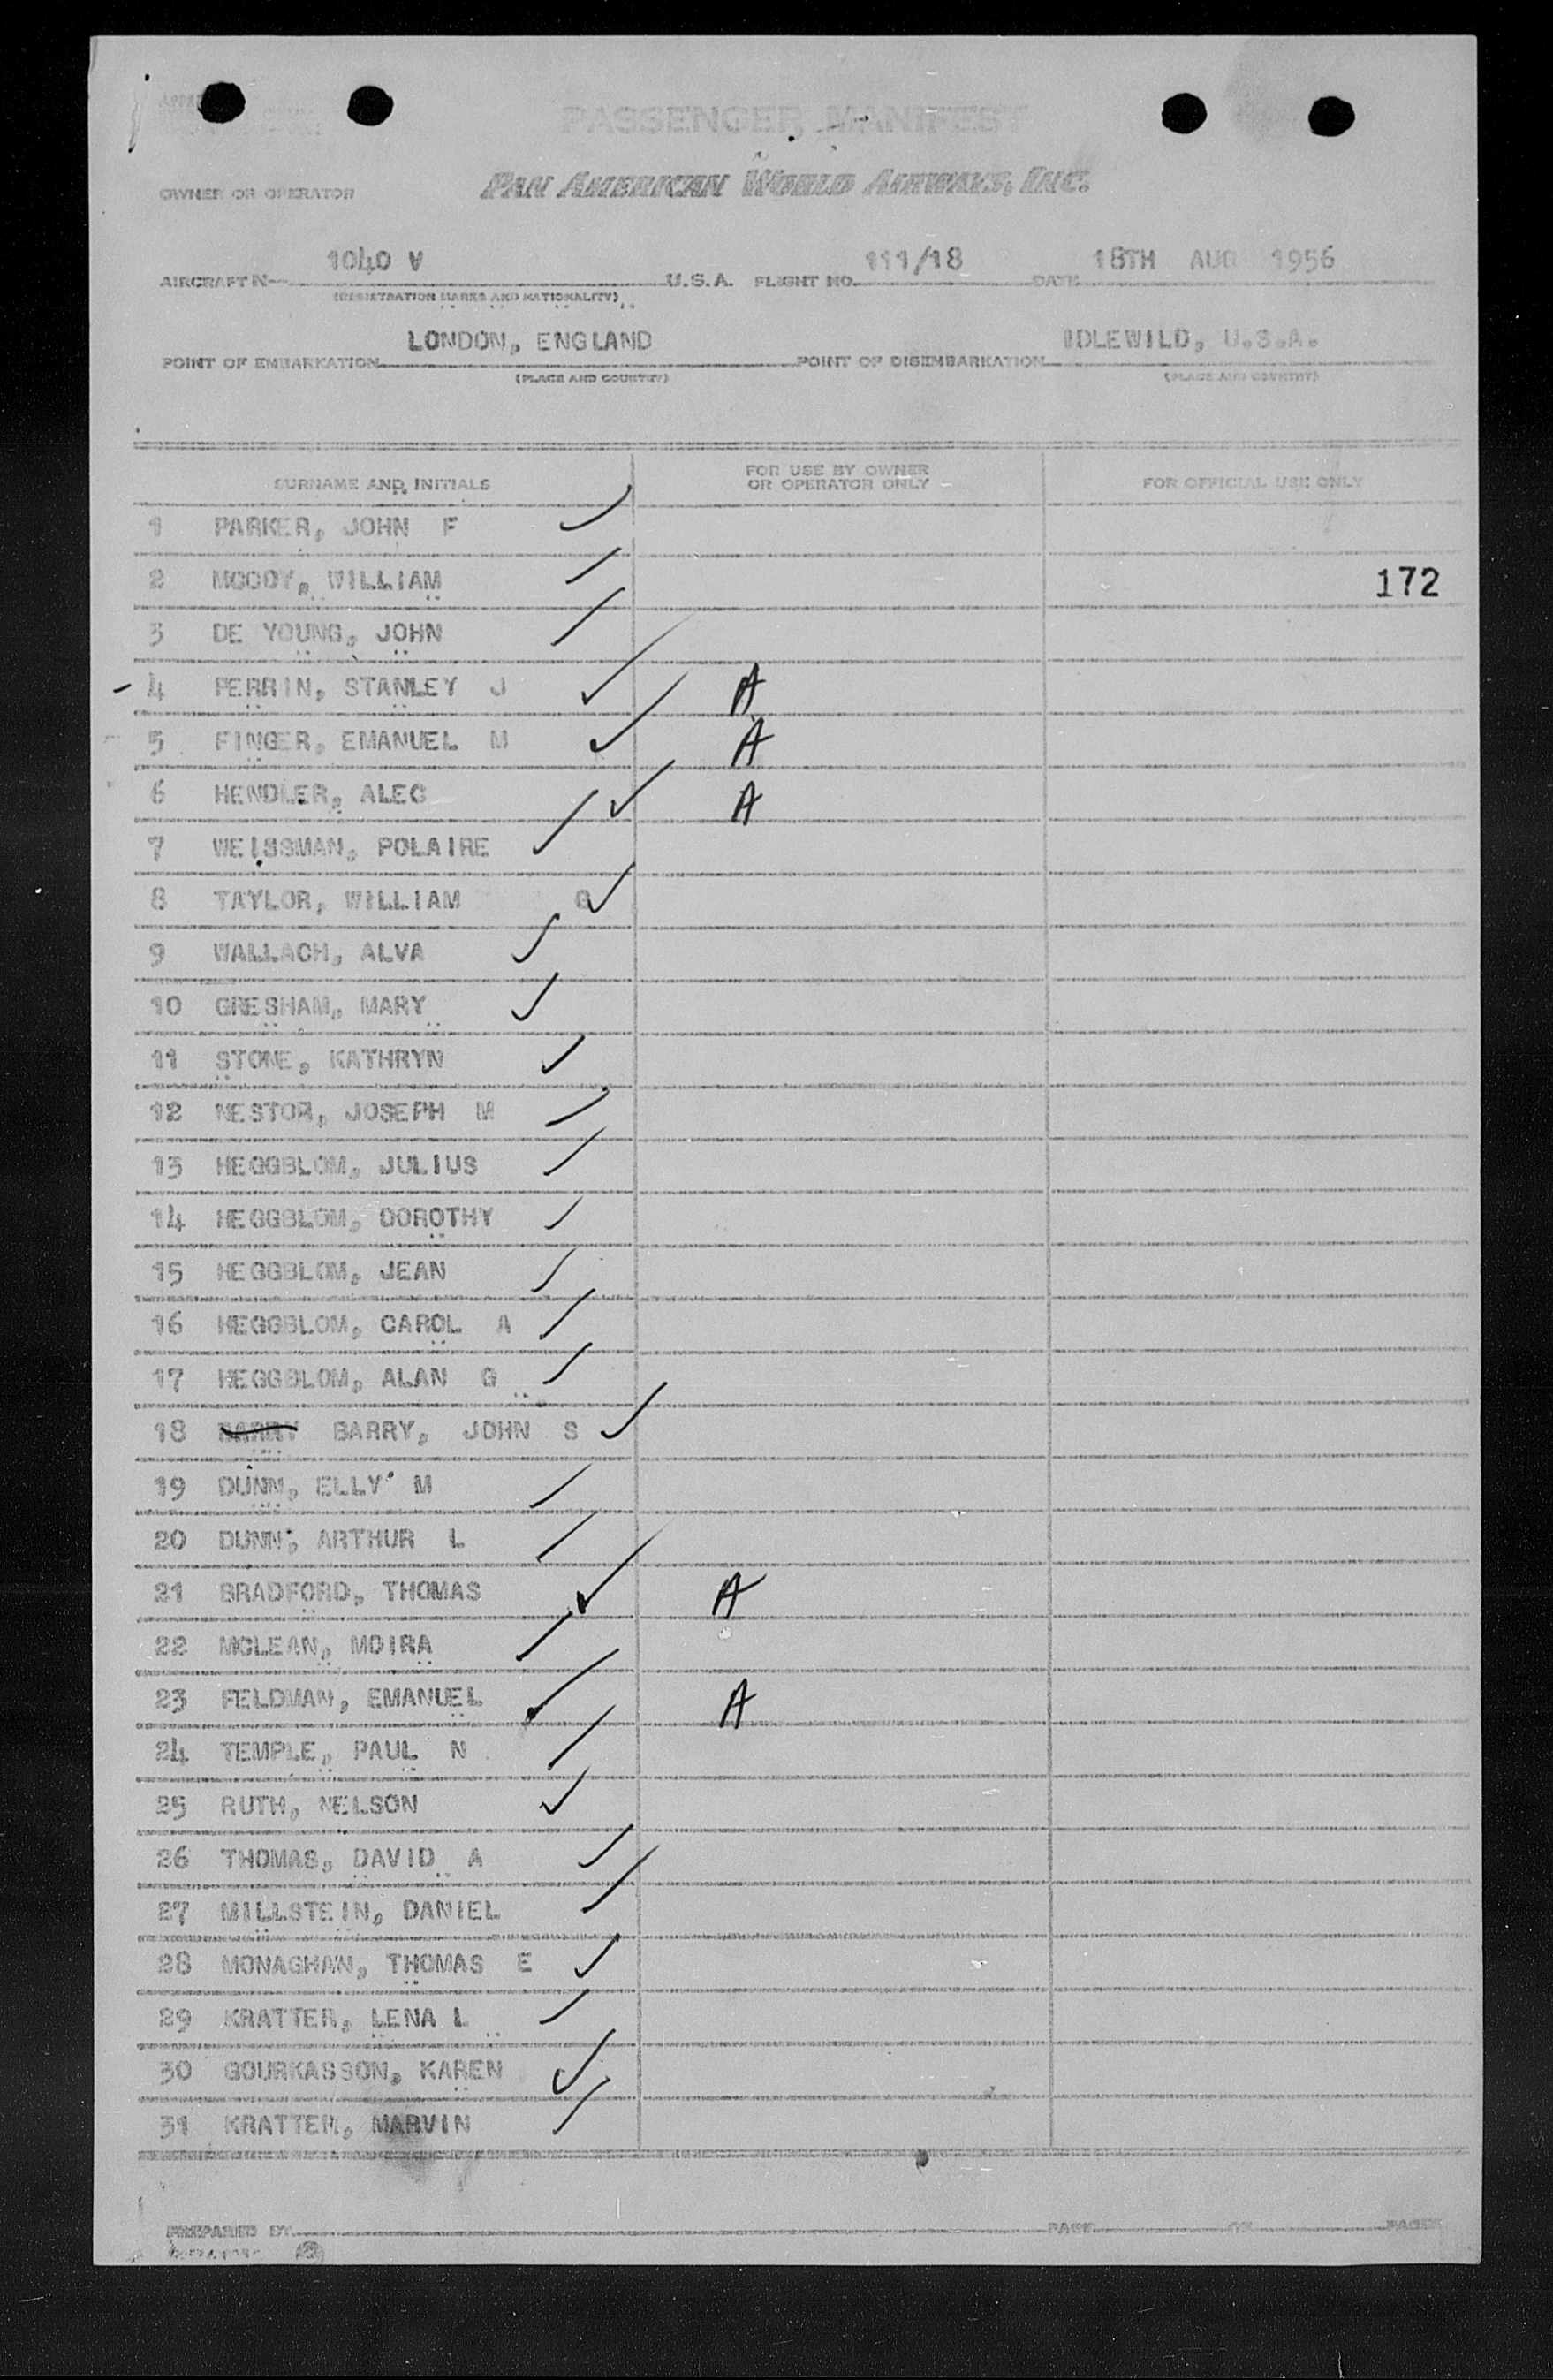 PASSENGER MANIFEST
OWNER OR OPERATOR PAN AMERICAN WORLD AIRWAYS, INC.
1040 V 111/18 18TH AUG 1956
AIRCRAFT N U.S.A. FLIGHT NO. DATE
(REGISTRATION MARKS AND NATIONALITY)
LONDON, ENGLAND IDLEWILD, U.S.A.
POINT OF EMBARKATION POINT OF DISEMBARKATION
(PLACE AND COUNTRY) (PLACE AND COUNTRY)
SURNAME AND INITIALS FOR USE BY OWNER OR OPERATOR ONLY FOR OFFICIAL USE ONLY
1 PARKER, JOHN F
2 MCCOY, WILLIAM 172
3 DE YOUNG, JOHN
4 PERRIN, STANLEY J A
5 FINGER, EMANUEL M A
6 HENDLER, ALEC A
7 WEISSMAN, POLAIRE
8 TAYLOR, WILLIAM G
9 WALLACH, ALVA
10 GRESHAM, MARY
11 STONE, KATHRYN
12 NESTOR, JOSEPH M
13 HEGGBLOM, JULIUS
14 HEGGBLOM, DOROTHY
15 HEGGBLOM, JEAN
16 HEGGBLOM, CAROL A
17 HEGGBLOM, ALAN G
18 BARRY BARRY, JOHN S
19 DUNN, ELLY M
20 DUNN, ARTHUR L
21 BRADFORD, THOMAS A
22 MCLEAN, MOIRA
23 FELDMAN, EMANUEL A
24 TEMPLE, PAUL N
25 RUTH, NELSON
26 THOMAS, DAVID A
27 MILLSTEIN, DANIEL
28 MONAGHAN, THOMAS E
29 KRATTER, LENA L
30 GOURKASSON, KAREN
31 KRATTER, MARVIN
PREPARED BY PAGE OF PAGES